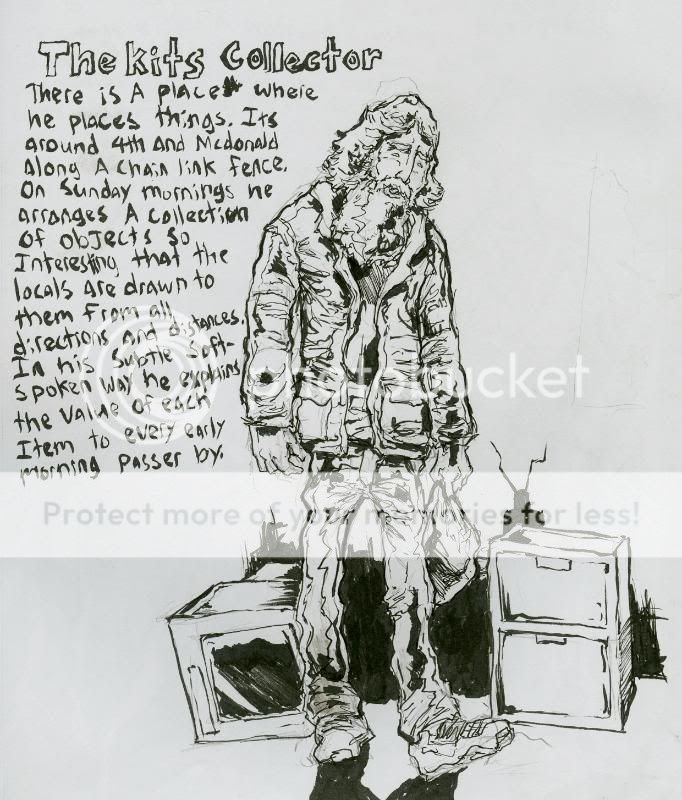 The Kits Collector
There is A place where
he places things. Its
around 4th And Mcdonald
Along A Chain link fence.
On Sunday mornings he
arranges A collection
of objects so
Interesting that the
locals Are drawn to
them from all
directions and distances.
In his Subtle Soft-
spoken way he explains
the value of each
Item to every early
morning passer by.
photobucket
Protect more of your memories for less!